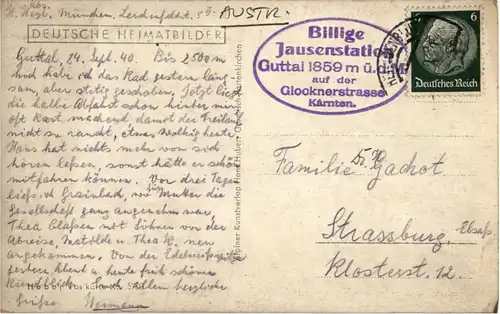 abg.
H. Hegl. München, Lerchenfeldstr. 5 II.
AUSTR.
DEUTSCHE HEIMATBILDER
Guttal, 24. Sept. 40. Bis 2500 m
hinauf habe ich das Rad gestern lang-
sam, aber stetig geschoben. Jetzt liegt
die halbe Abfahrt schon hinter mir
oft Rast machend damit der Freilauf
nicht zu raucht, etwas wolkig heute.
Hans hat nichts mehr von sich
hören lassen, sonst hätte er schön
mitfahren können. Vor drei Tagen
ließ ich Grainbach, wo für Mutter die
Gesellschaft ganz angenehm war,
Thea Claßen mit Söhnen vor der
Abreise, Mathilde u. Thea H. neu
angekommen. Von der Edelweißspitze
gestern Abend u. heute früh schönen
Rundblick. Euch allen herzliche
Grüße Hermann
Billige
Jausenstation
Guttal 1859 m ü. d. M.
auf der
Glocknerstrasse
Kärnten.
6
Deutsches Reich
Familie Dr. Gachot
Strassburg, Elsaß.
Klosterst. 12.